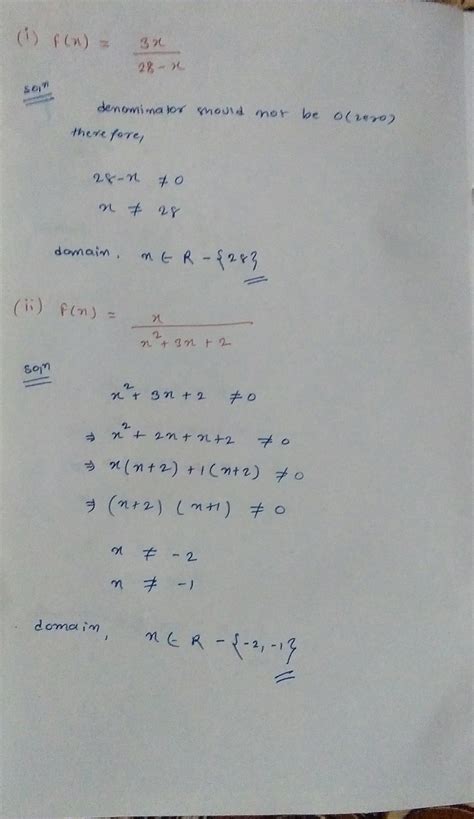 (i) f(x) = 3x / 28-x
soln
denominator should not be 0(zero)
therefore,
28-x ≠ 0
x ≠ 28
domain, x ∈ R - {28}
(ii) f(x) = x / x²+3x+2
soln
x²+3x+2 ≠ 0
⇒ x²+2x+x+2 ≠ 0
⇒ x(x+2)+1(x+2) ≠ 0
⇒ (x+2) (x+1) ≠ 0
x ≠ -2
x ≠ -1
domain, x ∈ R - {-2,-1}